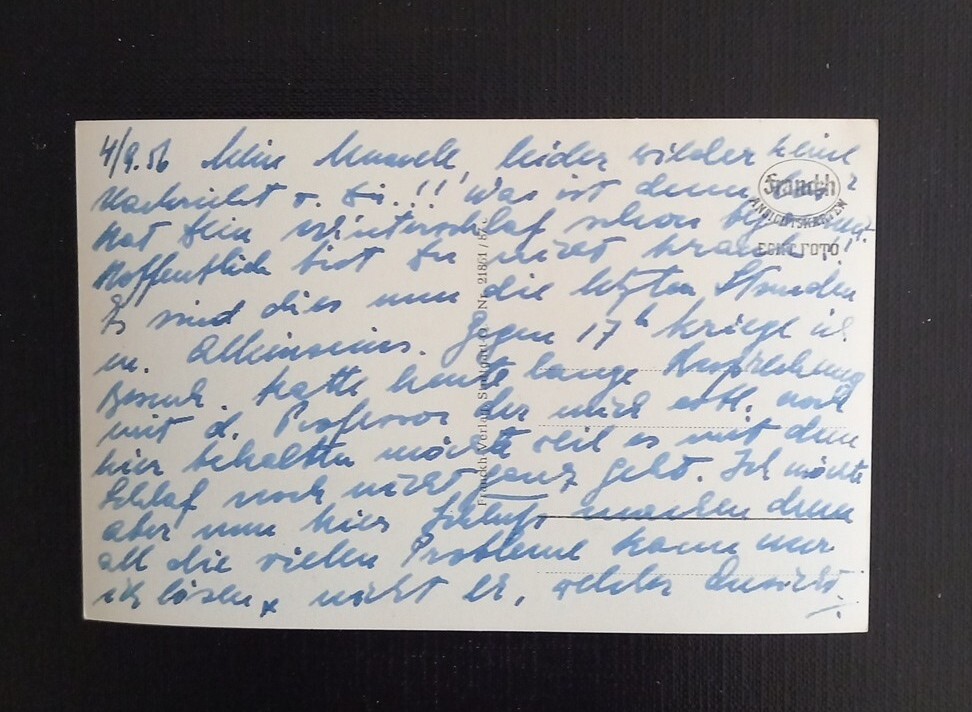 4/9.56 Mein          , leider wieder keine
Nachricht v. Dir!! Was ist denn los?
Hat Dein Winterschlaf schon begonnen?
Hoffentlich bist Du nicht krank!
Es sind dies nun die letzten Stunden
m. Alleinseins. Gegen 17h kriege ich
Besuch. Hatte heute lange Besprechung
mit d. Professor der mich evtl. noch
hier behalten möchte weil es mit dem
Schlaf noch nicht ganz geht. Ich möchte
aber nun hier Schluss machen denn
all die vielen Probleme kann nur
ich lösen, nicht er, welcher
Franckh
ANSICHTSKARTEN
ECHT FOTO
Franckh-Verlag, Stuttgart O Nr. 21861 / 87